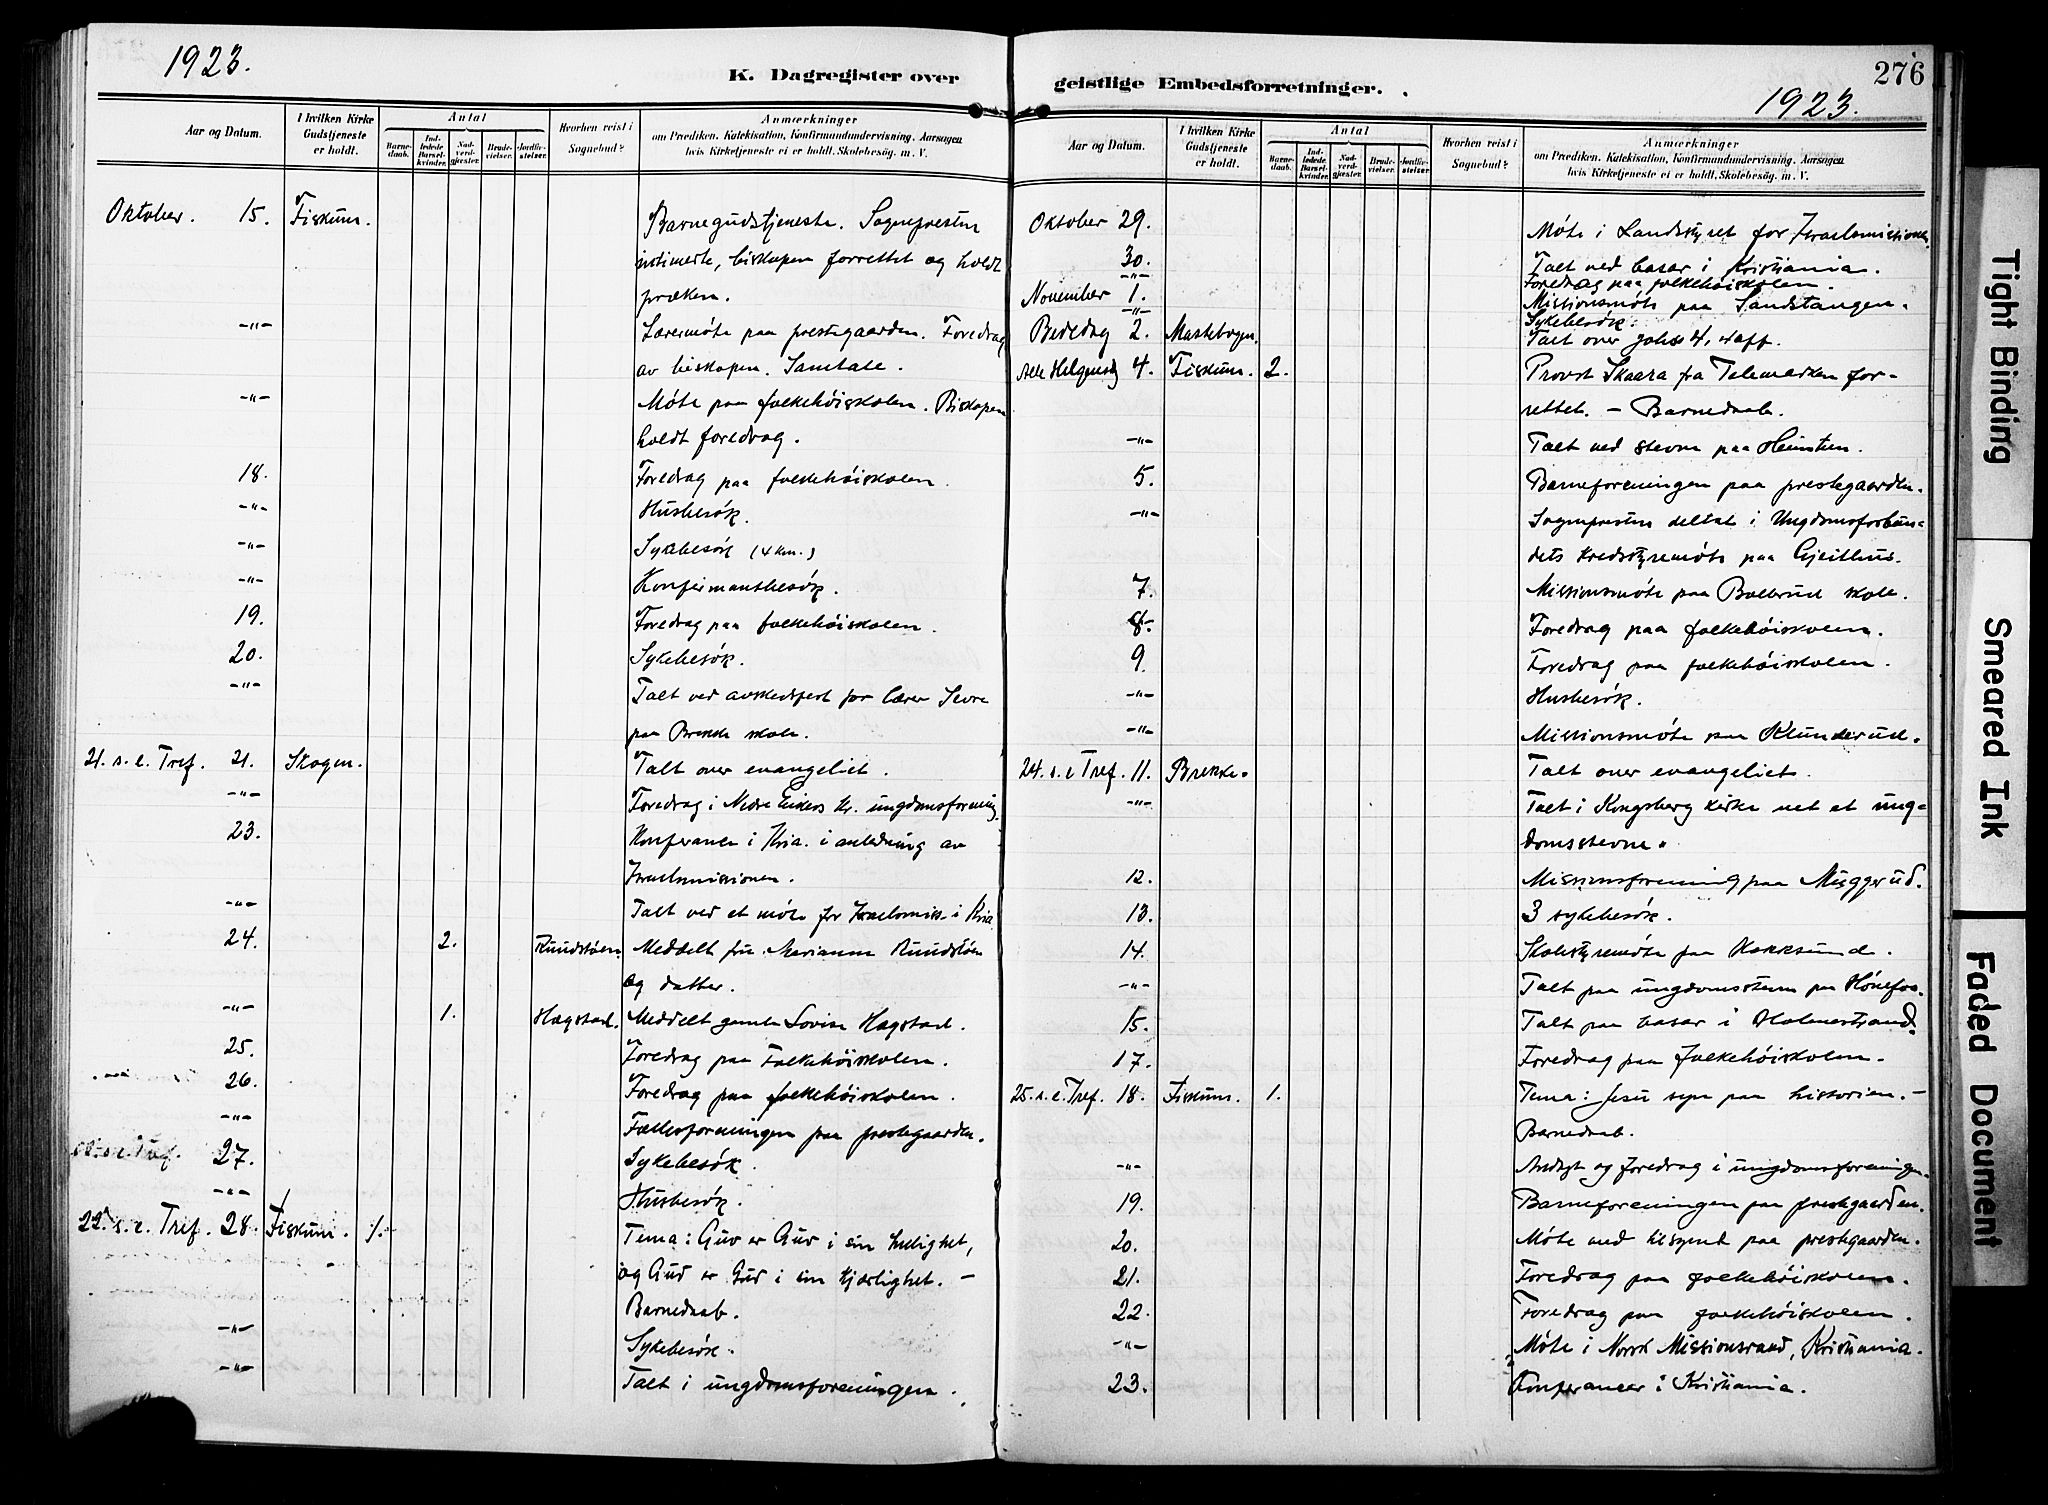 1923.
K. Dagregister over
Aar og Datum.
I hvilken Kirke Gudstjeneste er holdt.
Antal
Barnedaab.
Indledede Barselkvinder.
Nadverdgjester.
Brudevielser.
Jordfæstelser.
Hvorhen reist i Sognebud?
Anmærkninger
om Prædiken. Katekisation, Konfirmandundervisning. Aarsagen
hvis Kirketjeneste ei er holdt. Skolebesøg. m. V.
Oktober. 15. Fiskum. Barnegudstjeneste. Sognepresten
intimerte, biskopen forrettet og holdt
præken.
-"- Lærermøte paa prestegaarden. Foredrag
av biskopen. Samtale.
-"- Møte paa folkehøiskolen. Biskopen
holdt foredrag.
18. Foredrag paa folkehøiskolen.
-"- Husbesøk.
-"- Sykebesøk (4 km.)
-"- Konfirmantbesøk.
19. Foredrag paa folkehøiskolen.
20. Sykebesøk.
-"- Talt ved avskedsfest for lærer
paa Brekke skole.
21. s. e. Tref. 21. Skogen. Talt over evangeliet.
-"- Foredrag i Nedre Eikers kr. ungdomsforening.
23. Konferanse i Kria. i anledning av
Israelsmissionen.
-"- Talt ved et møte for Israelsmiss. i Kria
24. 2. Ruudstøen. Meddelt fru Marianne Ruudstøen
og datter.
-"- 1. Hagstad. Meddelt gamle Lovise Hagstad.
25. Foredrag paa Folkehøiskolen.
26. Foredrag paa folkehøiskolen.
-"- Fællesforeningen paa prestegaarden.
27. Sykebesøk.
-"- Husbesøk.
22. s. e. Tref. 28. Fiskum. 1. Tema: Gud er Gud i sin hellighet,
og Gud er Gud i sin kjærlighet. -
Barnedaab.
-"- Sykebesøk.
-"- Talt i ungdomsforeningen.
276
geistlige Embedsforretninger.
1923.
Aar og Datum.
I hvilken Kirke Gudstjeneste er holdt.
Antal
Barnedaab.
Indledede Barselkvinder.
Nadverdgjester.
Brudevielser.
Jordfæstelser.
Hvorhen reist i Sognebud?
Anmærkninger
om Prædiken. Katekisation, Konfirmandundervisning. Aarsagen
hvis Kirketjeneste ei er holdt. Skolebesøg. m. V.
Oktober 29. Møte i Landstyret for Israelsmissionen
30. Talt ved basar i Kristiania.
-"- Foredrag paa folkehøiskolen.
November 1. Missionsmøte paa Landstangen.
-"- Sykebesøk.
Bededag 2. Mastebogen. Talt over Johs 4,
Alle Helgensdg 4. Fiskum. 2. Provst Skaara fra Telemarken for-
rettet. - Barnedaab.
-"- Talt ved stevne paa
5. Barneforeningen paa prestegaarden.
-"- Sognepresten deltat i Ungdomsforbun-
dets kredsstyremøte paa Gjeithus.
7. Missionsmøte paa Bollerud skole.
8. Foredrag paa folkehøiskolen.
9. Foredrag paa folkehøiskolen.
-"- Husbesøk.
-"- Missionsmøte paa Klunderud.
24. s. e Tref. 11. Brekke. Talt over evangeliet.
-"- Talt i Kongsberg kirke ved et ung-
domsstevne.
12. Missionsforening paa Muggerud.
13. 3 sykebesøk.
14. Skolestyremøte paa Hokksund.
-"- Talt paa ungdomsstevne paa Hønefos.
15. Talt paa basar i Holmestrand.
17. Foredrag paa folkehøiskolen.
25. s. e. Tref. 18. Fiskum. 1. Tema: Jesu syn paa historien. -
Barnedaab.
-"- Andagt og foredrag i ungdomsforeningen.
19. Barneforeningen paa prestegaarden.
20. Møte med tilsynet paa prestegaarden.
21. Foredrag paa folkehøiskolen.
22. Foredrag paa folkehøiskolen.
-"- Møte i Norsk Missionsraad, Kristiania.
23. Konferancer i Kristiania.
Tight Binding
Smeared Ink
Faded Document